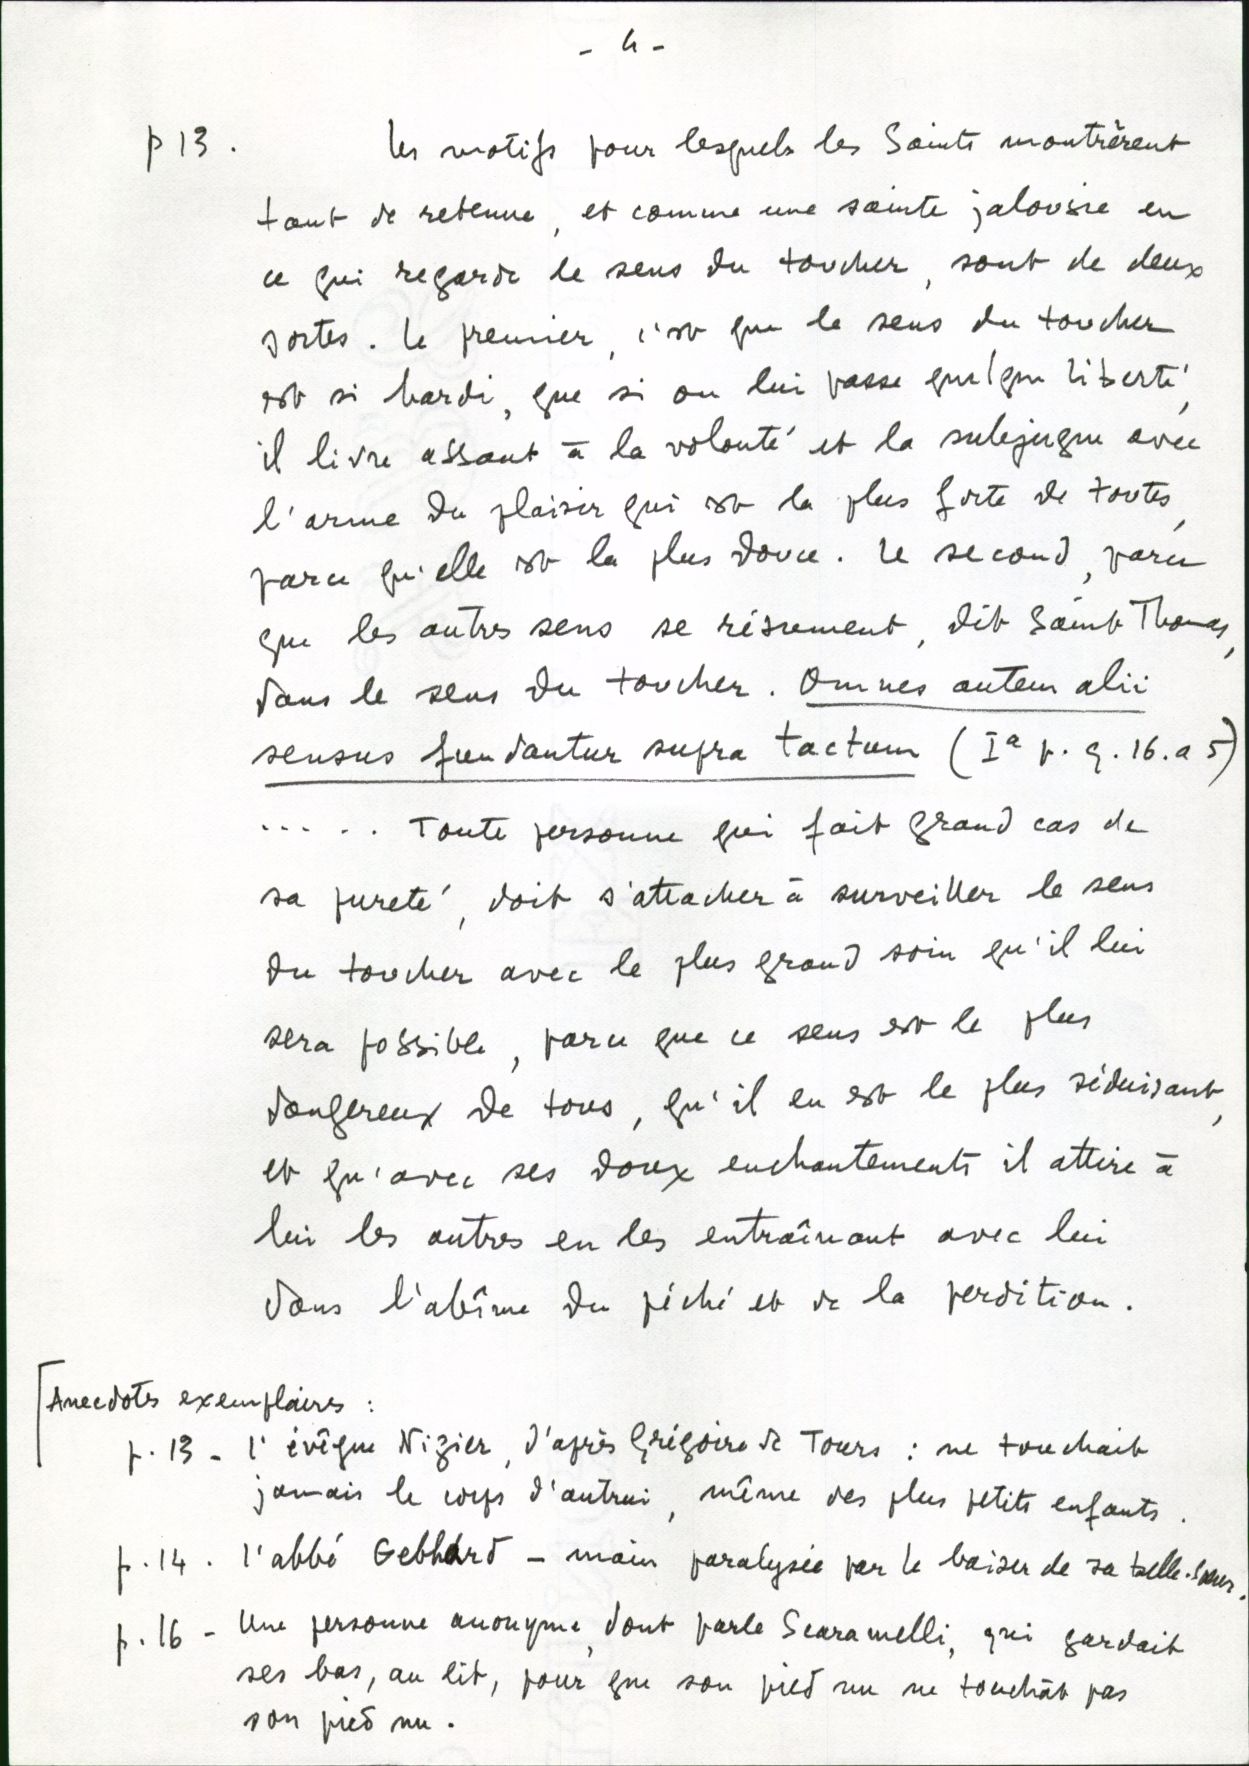 - 4 -
p 13 . Les motifs pour lesquels les Saints montrèrent
tant de retenue, et comme une sainte jalousie en
ce qui regarde le sens du toucher, sont de deux
sortes. Le premier, c'est que le sens du toucher
est si hardi, que si on lui passe quelque liberté,
il livre assaut à la volonté et la subjugue avec
l'arme du plaisir qui est la plus forte de toutes,
parce qu'elle est la plus douce. Le second, parce
que les autres sens se résument, dit Saint Thomas,
dans le sens du toucher. Omnes autem alii
sensus fundantur supra tactum (Iª p. q. 16. a 5)
..... Toute personne qui fait grand cas de
sa pureté, doit s'attacher à surveiller le sens
du toucher avec le plus grand soin qu'il lui
sera possible, parce que ce sens est le plus
dangereux de tous, qu'il en est le plus séduisant,
et qu'avec ses doux enchantements il attire à
lui les autres en les entraînant avec lui
dans l'abîme du péché et de la perdition.
Anecdotes exemplaires :
p. 13 - l'évêque Nizier, d'après Grégoire de Tours : ne touchait
jamais le corps d'autrui, même des plus petits enfants.
p. 14 . l'abbé Gebhard - main paralysée par le baiser de sa belle-sœur.
p. 16 - Une personne anonyme, dont parle Scaramelli, qui gardait
ses bas, au lit, pour que son pied nu ne touchât pas
son pied nu.